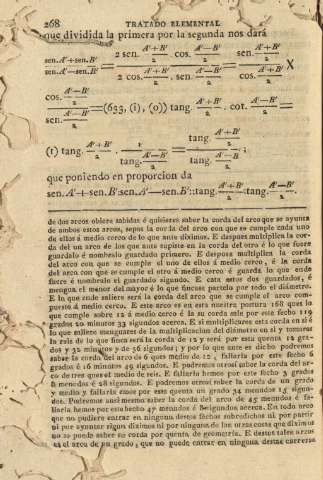 268 TRATADO ELEMENTAL
que dividida la primera por la segunda nos dará
sen. A'+sen. B' / sen. A'—sen. B' = 2 sen. (A'+B')/2 . cos. (A'—B')/2 / 2 cos. (A'+B')/2 . sen. (A'—B')/2 = sen. (A'+B')/2 / cos. (A'+B')/2 X
cos. (A'—B')/2 / sen. (A'—B')/2 = (633, (i), (o)) tang. (A'+B')/2 . cot. (A'—B')/2 =
(r) tang. (A'+B')/2 . r / tang. (A'—B')/2 = tang. (A'+B')/2 / tang. (A'—B')/2 ;
que poniendo en proporcion da
sen. A'+sen. B':sen. A'—sen. B'::tang. (A'+B')/2 :tang. (A'—B')/2 .
de dos arcos obiere sabidas é quisieres saber la corda del arco que se ayunta
de ambos estos arcos, sepas la corda del arco con que se cumple cada uno
de ellos á medio cerco de lo que ante diximos. E despues multiplica la cor-
da del un arco de los que ante supiste en la corda del otro é lo que fuere
guardalo é nombralo guardado primero. E despues multiplica la corda
del arco con que se cumple el uno de ellos á medio cerco, é la corda
del arco con que se cumple el otro á medio cerco é guarda lo que ende
fuere é nombralo el guardado segundo. E cata estos dos guardados, é
mengua el menor del mayor é lo que fincare partelo por todo el diámetro.
E lo que ende saliere será la corda del arco que se cumple el arco com-
puesto á medio cerco. E este arco es en esta nuestra postura 168 ques la
que cumple sobre 12 á medio cerco é la su corda sale por este fecho 119
grados 20 minutos 33 segundos acerca. E si multiplicares esta corda en sí é
lo que saliere menguares de la multiplicacion del diámetro en sí y tomares
la raiz de lo que finca será la corda de 12 y será por esta quenta 12 gra-
dos y 32 minutos y de 36 segundos; y por lo que ante es dicho podremos
saber la corda del arco de 6 ques medio de 12, fallarla por este fecho 6
grados é 16 minutos 49 segundos. E podremos otrosí saber la corda del ar-
co de tres ques el medio de seis. E fallarla hemos por este fecho 3 grados
é menudos é 28 segundos. E podremos otrosí saber la corda de un grado
y medio y fallarla emos por esta quenta un grado 34 menudos 15 segun-
dos. Podremos ansímesmo saber la corda del arco de 45 menudos é fa-
llarla hemos por este hecho 47 menudos é 8 segundos acerca. En todo arco
que no pudiere entrar en ninguna destos fechos sobredichos ni por partir
ni por ayuntar signo diximos ni por ninguno de las otras cosas que diximos
no se puede saber su corda por quenta de geometria. E destos tales arcos
es el arco de un grado, que no puede entrar en ninguna destas carreras